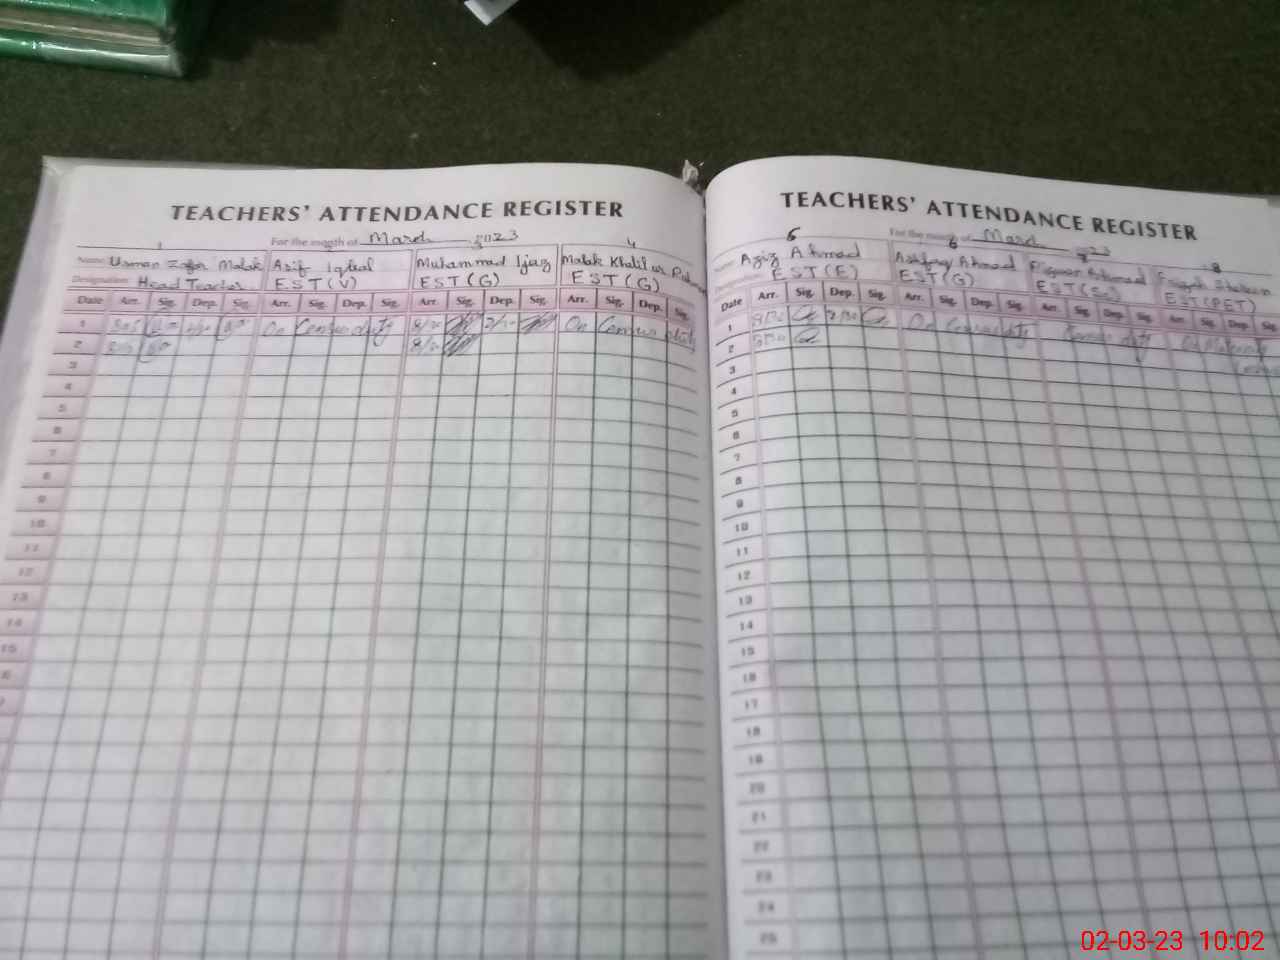 TEACHERS' ATTENDANCE REGISTER
For the month of March 2023
1 4
Name Usman Zafar Malak Asif Iqbal Muhammad Ijaz Malak Khalil ur
Designation Head Teacher EST (V) EST (G) EST (G)
Date Arr. Sig. Dep. Sig. Arr. Sig. Dep. Sig. Arr. Sig. Dep. Sig. Arr. Sig. Dep. Sig.
1 On Census duty On Census duty
2
3
4
5
6
7
8
9
10
11
12
13
14
15
TEACHERS' ATTENDANCE REGISTER
For the month of March 2023
5 6 8
Name Aziz Ahmad Ahmad
Designation EST (E) EST (G) EST (PET)
Date Arr. Sig. Dep. Sig. Arr. Sig. Dep. Sig. Arr. Sig. Dep. Sig. Arr. Sig. Dep. Sig.
1 8/30 2/30 On Census duty Census duty On Maternity
2 8/30
3
4
5
6
7
8
9
10
11
12
13
14
15
16
17
18
19
20
21
22
23
24
25
02-03-23 10:02